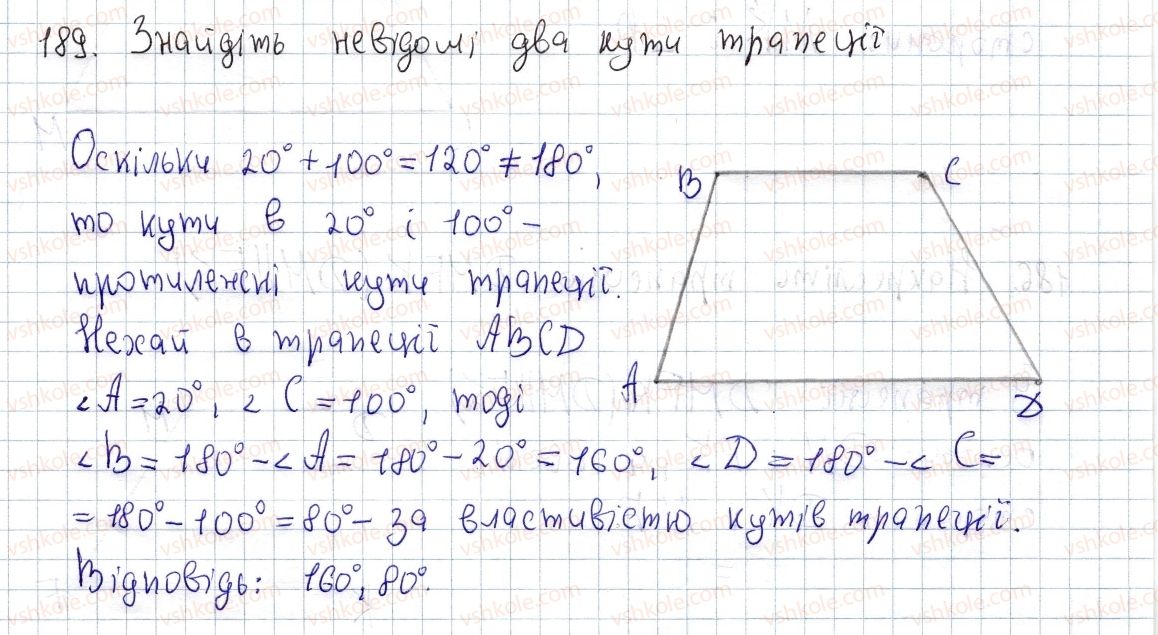 189. Знайдіть невідомі два кути трапеції
Оскільки 20° + 100° = 120° ≠ 180°,
то кути в 20° і 100° –
протилежні кути трапеції.
Нехай в трапеції ABCD
∠A = 20°, ∠C = 100°, тоді
∠B = 180° – ∠A = 180° – 20° = 160°, ∠D = 180° – ∠C =
= 180° – 100° = 80° – за властивістю кутів трапеції.
Відповідь: 160°, 80°.
B
C
A
D